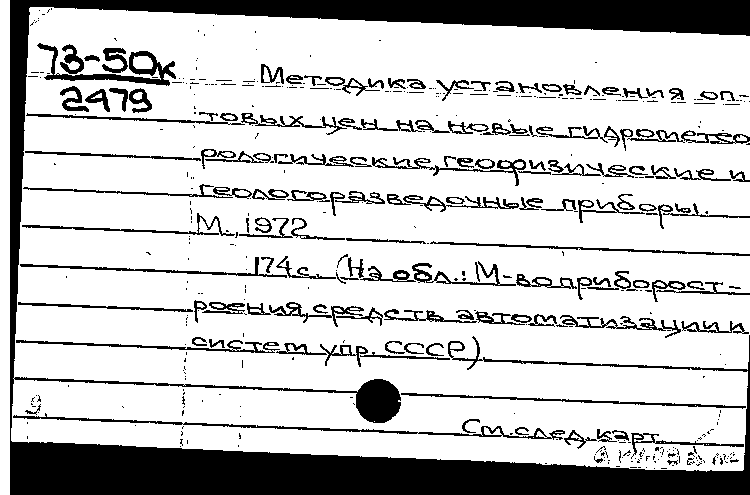 73-50к
2479
Методика установления оп-
товых цен на новые гидрометео
рологические, геофизические и
геологоразведочные приборы.
М., 1972
174 с. (На обл.: М-во приборост-
роения, средств автоматизации и
систем упр. СССР).
9.
См. след. карт.